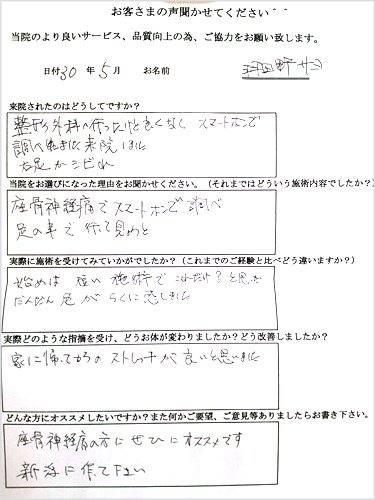 お客さまの声聞かせてください＾＾
当院のより良いサービス、品質向上の為、ご協力をお願い致します。
日付30 年 5月 お名前
来院されたのはどうしてですか？
整形外科へ行ったけど良くなく スマートホンで
調べ 来院しました
右足がシビれ
当院をお選びになった理由をお聞かせください。（それまではどういう施術内容でしたか？）
座骨神経痛で スマートホンで 調べ
足の事で 行って見ようと
実際に施術を受けてみていかがでしたか？（これまでのご経験と比べどう違いますか？）
始めは 短い 施術で これだけ？と思い
だんだん 足が らくに感じました
実際どのような指摘を受け、どうお体が変わりましたか？どう改善しましたか？
家に帰ってからの ストレッチが 良いと思いました
どんな方にオススメしたいですか？また何かご要望、ご意見等ありましたらお書き下さい。
座骨神経痛の方に ぜひ に オススメです
に 作て 下さい